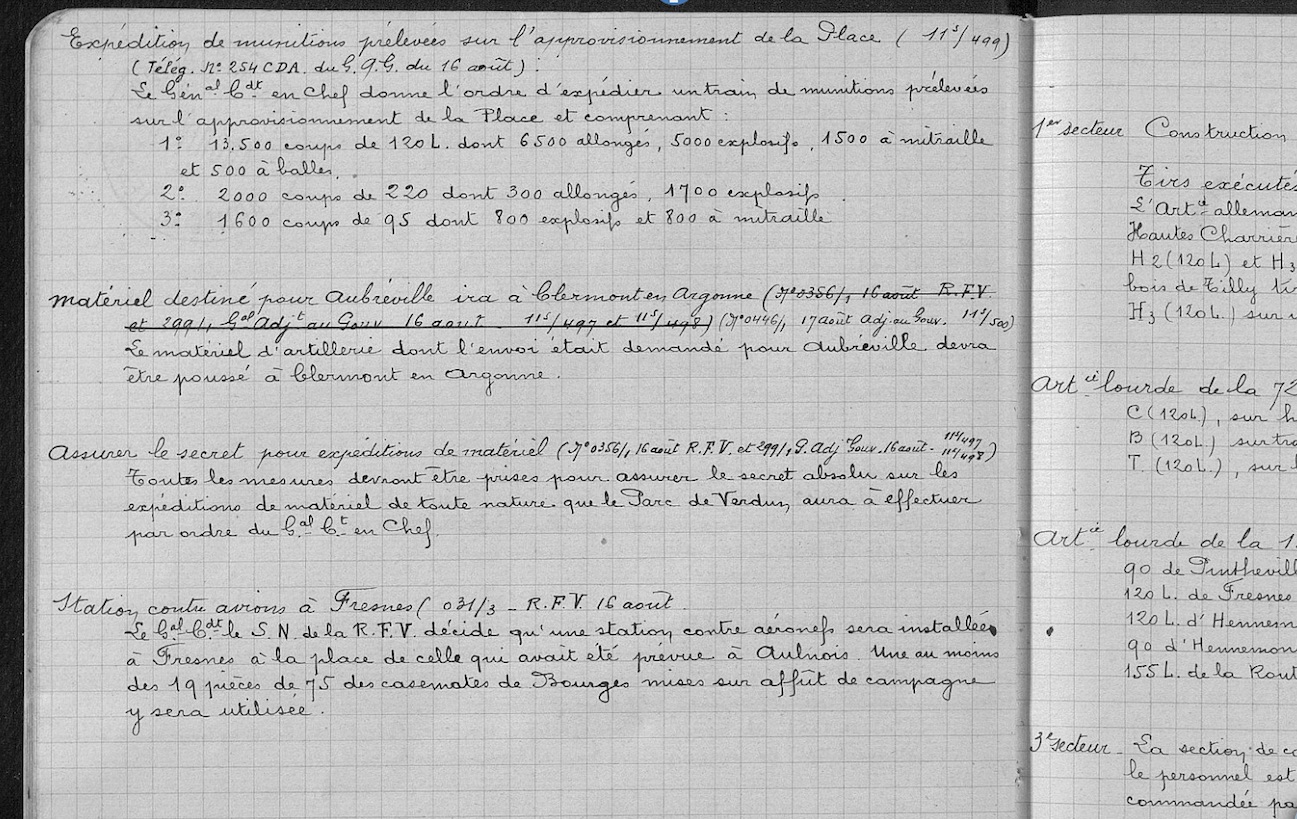 Expédition de munitions prélevées sur l'approvisionnement de la Place ( 11⁵/499)
( Télég. N° 254 CDA. du G.Q.G. du 16 août ) :
Le Génᵃˡ Cᵈᵗ en Chef donne l'ordre d'expédier un train de munitions prélevées
sur l'approvisionnement de la Place et comprenant :
1° 13.500 coups de 120 L. dont 6500 allongés, 5000 explosifs, 1500 à mitraille
et 500 à balles.
2° 2000 coups de 220 dont 300 allongés, 1700 explosifs
3° 1600 coups de 95 dont 800 explosifs et 800 à mitraille
Matériel destiné pour Aubréville ira à Clermont en Argonne (N° 0356/1, 16 août R.F.V.
et 299/1, Gᵃˡ Adjᵗ au Gouv. 16 août 11⁵/497 et 11⁵/498) (N° 0446/1, 17 août Adj. au Gouv. 11⁵/500)
Le matériel d'artillerie dont l'envoi était demandé pour Aubréville devra
être poussé à Clermont en Argonne.
Assurer le secret pour expéditions de matériel (N° 0356/1, 16 août R.F.V. et 299/1, G. Adj Gouv. 16 août - 11⁴/497 - 11⁴/498)
Toutes les mesures devront être prises pour assurer le secret absolu sur les
expéditions de matériel de toute nature que le Parc de Verdun, aura à effectuer
par ordre du Gᵃˡ Cᵗ en Chef.
Station contre avions à Fresnes ( 031/3 - R.F.V. 16 août.
Le Gᵃˡ Cᵈᵗ le S.N. de la R.F.V. décide qu'une station contre aéronefs sera installée
à Fresnes à la place de celle qui avait été prévue à Aulnois. Une au moins
des 19 pièces de 75 des casemates de Bourges mises sur affût de campagne
y sera utilisée.
1ᵉʳ secteur Construction
Tirs exécutés
L'Artⁱᵉ alleman
Hautes Charrièr
H2 (120 L) et H3
bois de Tilly tir
H3 (120 L.) sur
Artⁱᵉ lourde de la 72
C (120 L), sur h
B (120 L) sur tra
T. (120 L.), sur l
Artⁱᵉ lourde de la 1
90 de Pintheville
120 L. de Fresnes
120 L. d'Hennem
90 d'Hennemon
155 L. de la Rout
3ᵉ secteur - La section de co
le personnel est
commandée pa